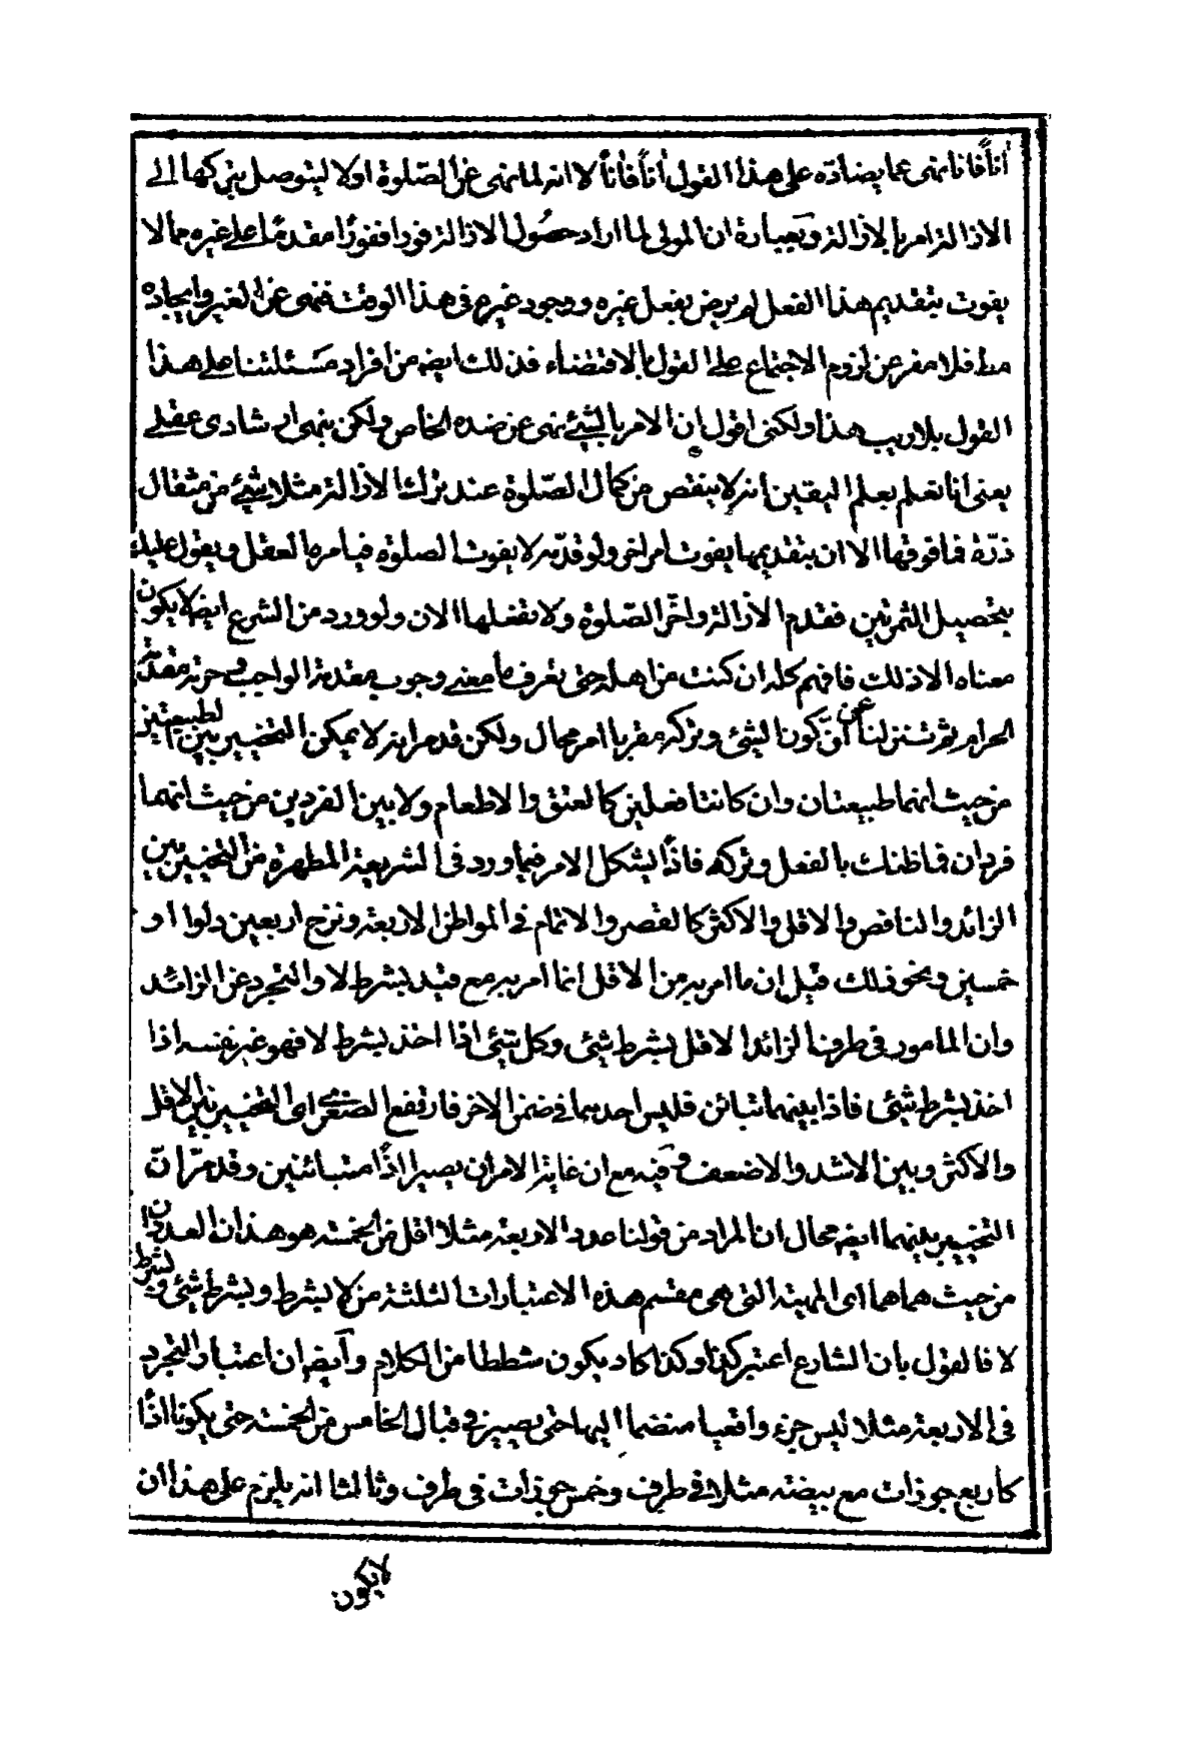 اناًفاناً نهى عما يضادّه على هذا القول اناًفاناً لا انه لما نهى عن الصّلوة اولا ليتوصل بتركها الى
الازالة امر بالازالة وبعبارة ان المولى لما اراد حصُول الازالة فوراففورًا مقدمًا على غيره مما لا
يفوت بتقديم هذا الفعل لم يرض بفعل غيره ووجود غيره فى هذا الوقت فنهى عن الغير وايجاده
فلا مفر عن لزوم الاجتماع على القول بالاقتضاء فذلك ايضه من افراد مَسئلتنا على هذا
القول بلا ريب هذا ولكنى اقول ان الامر بالشئ نهى عن ضده الخاص ولكن بنهى ارشادى عقلى
يعنى انا نعلم بعلم اليقين انه لا ينقص من كمال الصّلوة عند ترك الازالة مثلا شئ من مثقال
ذرّة فما فوقها الا ان بتقديمها يفوت امر اخر ولو قدّمه لا يفوت الصلوة فيامره العقل ويقول عليك
بتحصيل الثمرتين فقدم الازالة واخّر الصّلوة ولا تفعلها الان ولو ورد من الشرع ايضه لا يكون
معناه الا ذلك فافهم كله ان كنت من اهله حتى تعرف ما معنى وجوب مقدمة الواجب وحرمة مقدمة
الحرام ثم تنزلنا عن كون الشئ وتركه مقربا امر محال ولكن قد مر انه لا يمكن التخيير بين الطبيعتين
من حيث انهما طبيعتان وان كانتا فعلين كالعتق والاطعام ولا بين الفردين من حيث انهما
فردان فما ظنك بالفعل وتركه فاذًا يشكل الامر فيما ورد فى الشريعة المطهرة من التخيير بين
الزائد والناقص والاقل والاكثر كالقصر والاتمام فى المواطن الاربعة ونزح اربعين دلوا او
خمسين ونحو ذلك قيل ان ما امر به من الاقل انما امر به مع قيد بشرط لا والتجرد عن الزائد
وان المامور فى طرف الزائد الاقل بشرط شئ وكل شئ اذا اخذ بشرط لا فهو غير نفسه اذا
اخذ بشرط شئ فاذا بينهما تباين فليس احدهما فى ضمن الاخر فارتفع الصغرى اى التخيير بين الاقل
والاكثر وبين الاشد والاضعف وفيه مع ان غاية الامر ان يصيرا اذًا متبائنين وقد مرّ انّ
التخيير بينهما ايضه محال ان المراد من قولنا عدد الاربعة مثلا اقل من الخمسة هو هذان العددان
من حيث هما هما اى المهيّة التى هى مقسم هذه الاعتبارات الثلثة من لا بشرط وبشرط شئ وبشرط
لا فالقول بان الشارع اعتبر كذا وكذا كاد يكون شططا من الكلام وآيضه ان اعتبار التجرد
فى الاربعة مثلا ليس جزء واقعيا منضما اليها حتى يصير فى قبال الخامس من الخمسة حتى يكونا اذًا
كاربع جوزات مع بيضة مثلا فى طرف وخمس جوزات فى طرف وثالثا انه يلزم على هذا ان
لا يكون